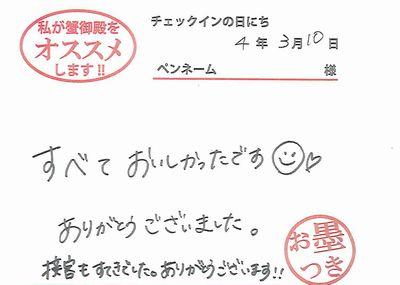 私が蟹御殿を
オススメ
します!!
チェックインの日にち
4年3月10日
ペンネーム 様
すべて おいしかったです
ありがとうございました。
接客もすてきでした。ありがとうございます!!
お墨
つき